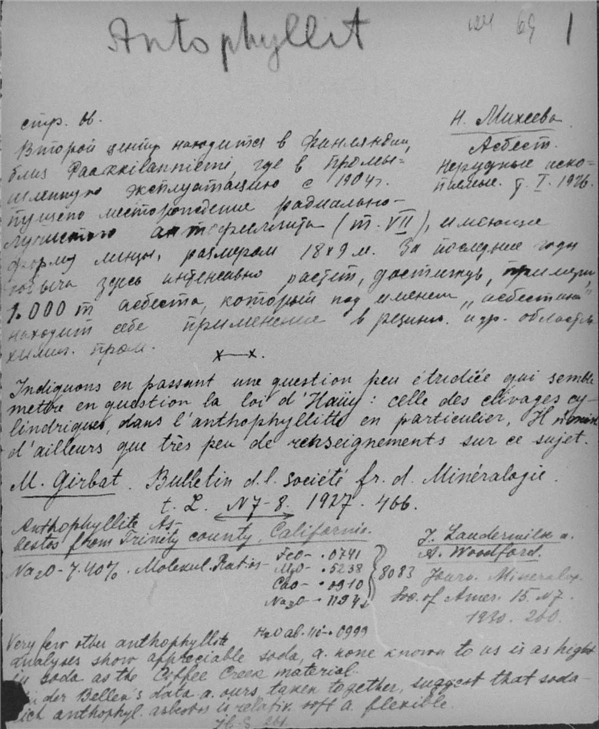 Antophyllit 1
стр. 08.
Н. Михеева
Второй центр находится в Финляндии,
Асбест.
близ Paakkilanniemi, где в промы-
Нерудные иско-
шленную эксплоатацию с 1904 г.
паемые. т. I. 1926.
пущено месторождение радиально-
лучистого антофиллита (т. VII), имеющее
форму линзы, размером 18x9 м. За последние годы
добыча здесь интенсивно растет, достигнув, пример.
1.000 т асбеста, который под именем „асбестина"
находит себе применение в резин. и др. областях
химич. пром.
x—x.
Indiquons en passant une question peu étudiée qui semble
mettre en question la loi d'Haüy: celle des clivages cy-
lindriques, dans l'anthophyllite en particulier. Il n'existe
d'ailleurs que très peu de renseignements sur ce sujet.
M. Girbat. Bulletin d. l. Société fr. d. Minéralogie.
t. L. N7-8. 1927. 466.
Anthophyllite As-
bestos from Trinity county, California.
J. Laudermilk a.
A. Woodford.
Na2O-7.40%. Molekul. Ratios-
FeO- .0741
MgO- .5238
CaO- .0910
Na2O-
8083
Journ. Mineralog.
Soc. of Amer. 15. N7.
1930. 260.
H2O ab. 110- .0999
Very few other anthophyllite
analyses show appreciable soda, a. none known to us is as high
in soda as the Coffee Creek material.
der Bellen's data a. ours, taken together, suggest that soda-
rich anthophyl. asbestos is relativ. soft a. flexible.